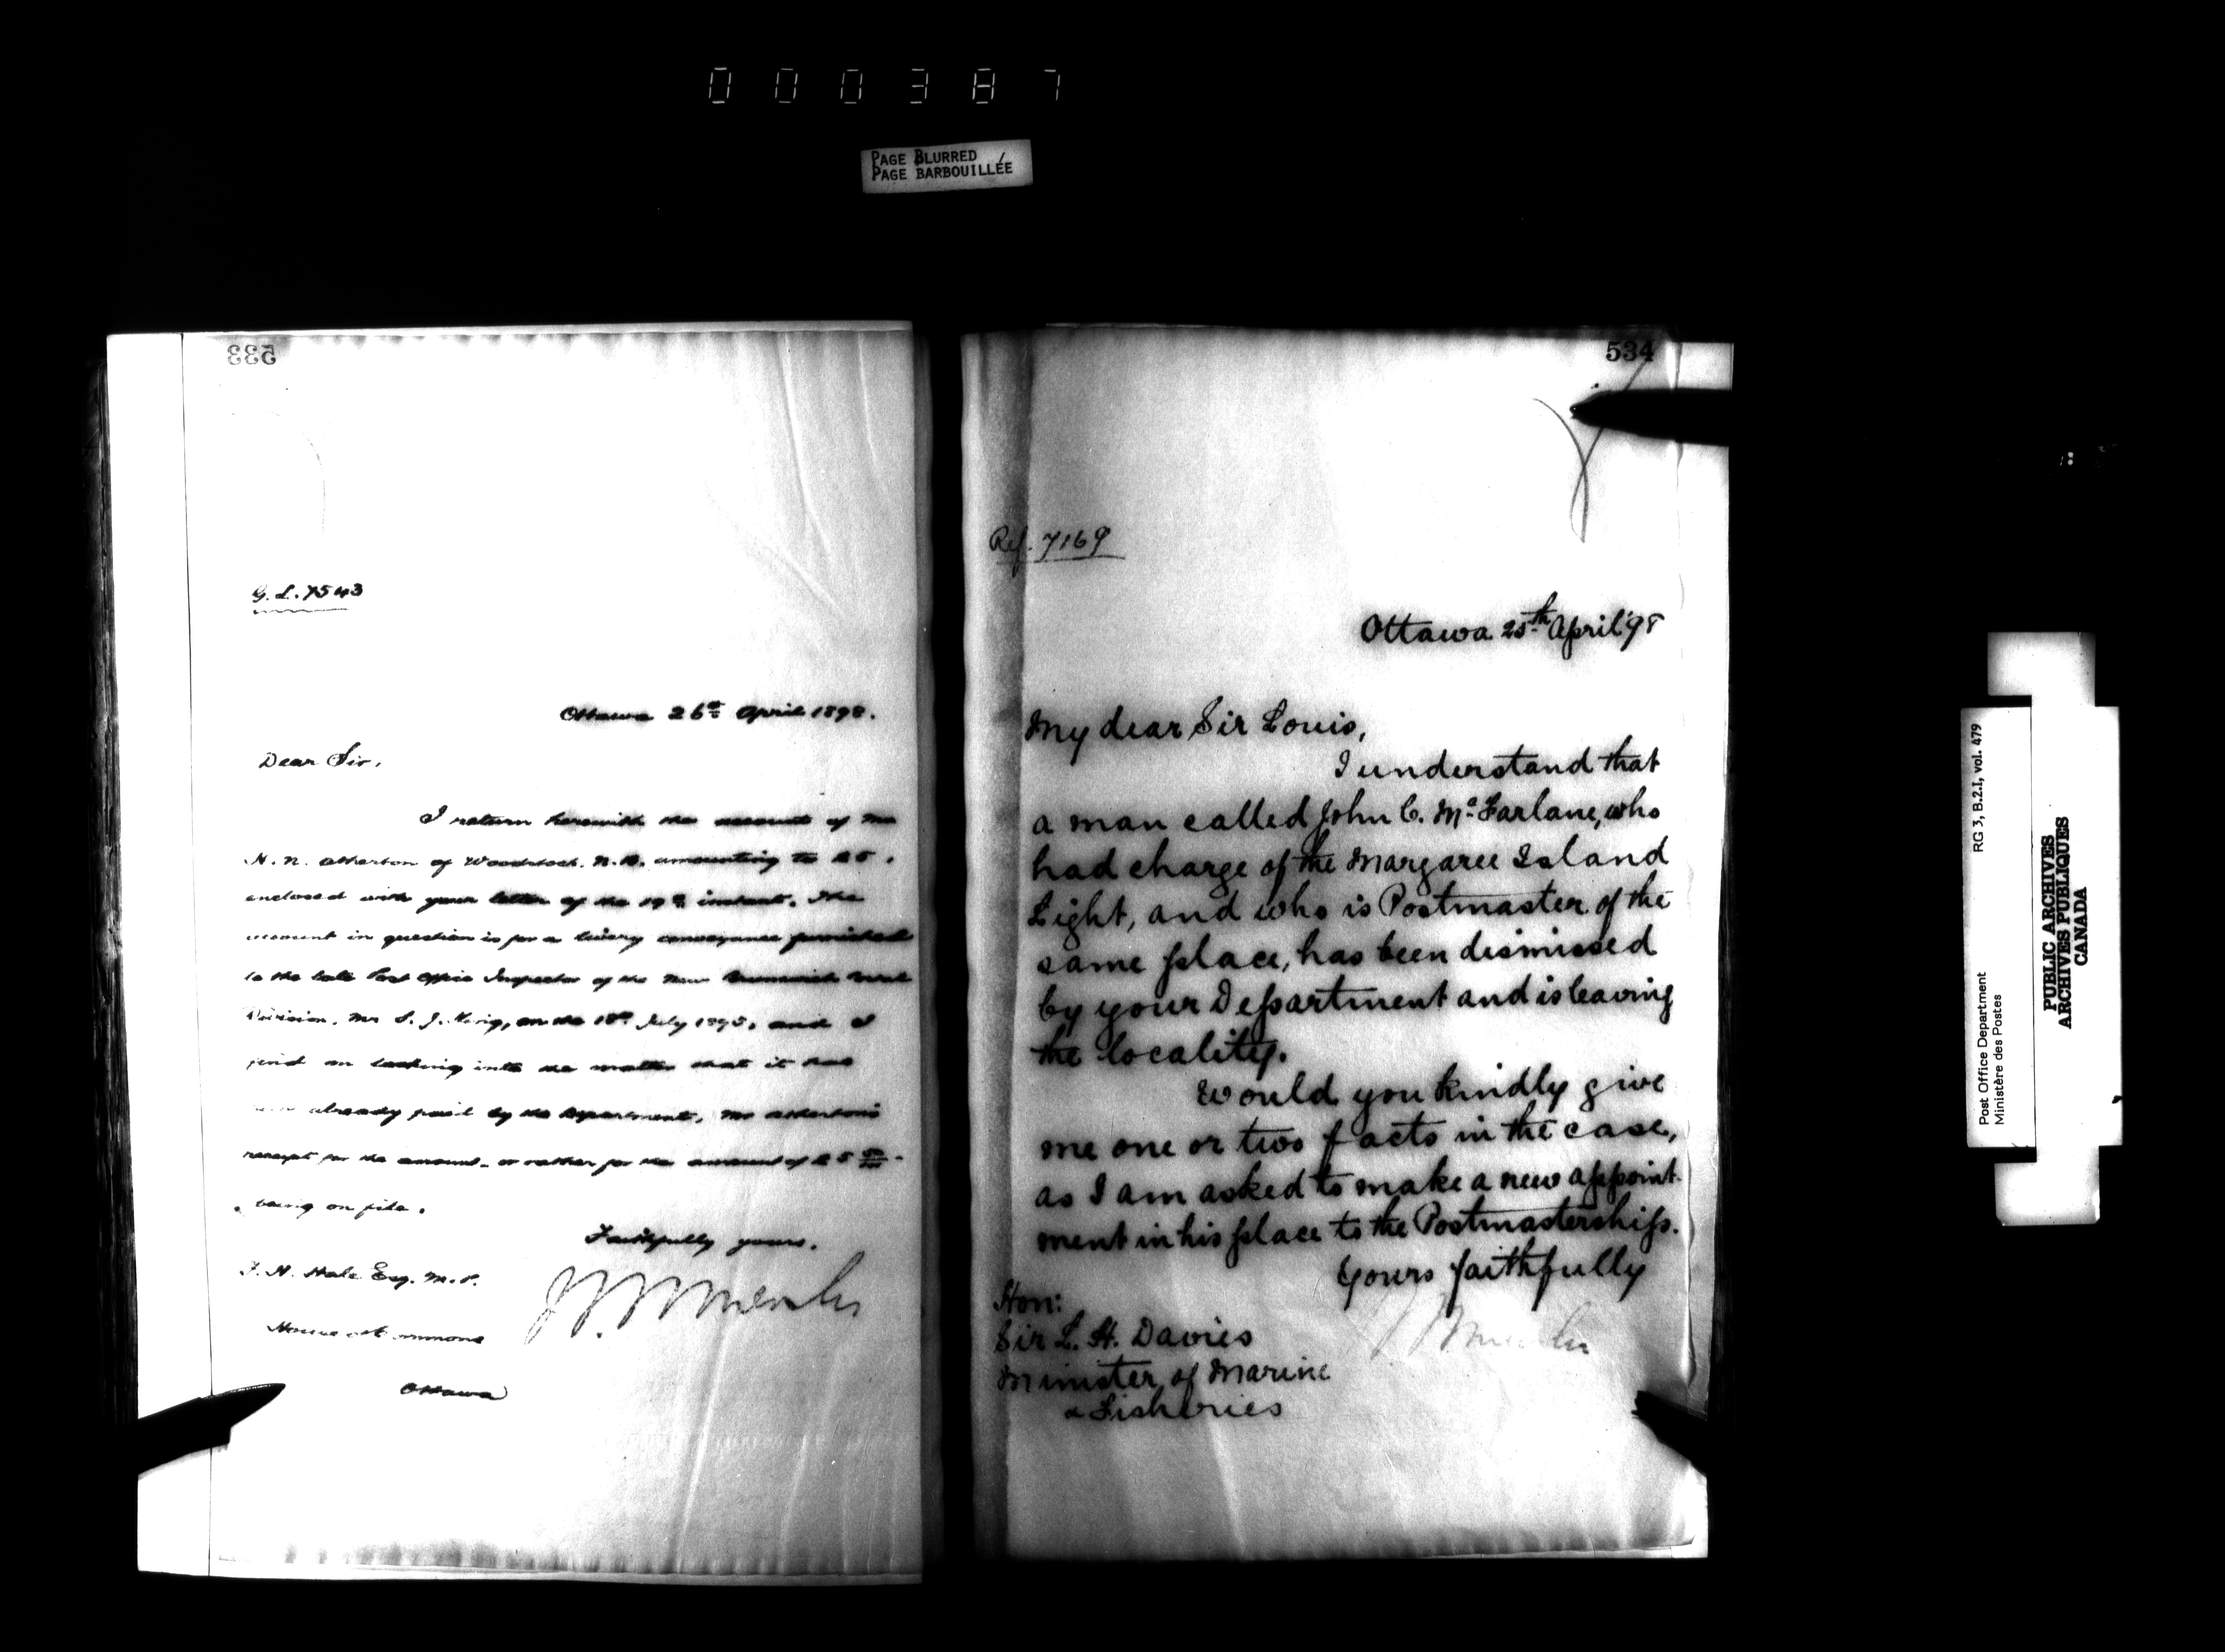 000387
PAGE BLURRED
PAGE BARBOUILLÉE
533
G. L. 7543
Ottawa 26th April 1898.
Dear Sir,
I return herewith the account of Mr
H. N. Atherton of Woodstock. N.B. amounting to $5.
enclosed with your letter of the 19th instant. The
account in question is for a livery conveyance furnished
to the late Post Office Inspector of the New Brunswick
Division, Mr S. J. King, on the 18th July 1895, and I
find on looking into the matter that it has
already paid by the Department, Mr Atherton's
receipt for the amount - or rather for the amount of $5 50/100 -
being on file.
Faithfully yours,
F. H. Hale Esq. M.P.
House of Commons
Ottawa
534
Ref. 7169
Ottawa 25th April '98
My dear Sir Louis,
I understand that
a man called John C. McFarlane, who
had charge of the Margaree Island
Light, and who is Postmaster of the
same place, has been dismissed
by your Department and is leaving
the locality.
Would you kindly give
me one or two facts in the case,
as I am asked to make a new appoint-
ment in his place to the Postmastership.
Yours faithfully
Hon:
Sir L. H. Davies
Minister of Marine
& Fisheries
Post Office Department
Ministère des Postes
RG 3, B.2.1, vol. 479
PUBLIC ARCHIVES
ARCHIVES PUBLIQUES
CANADA